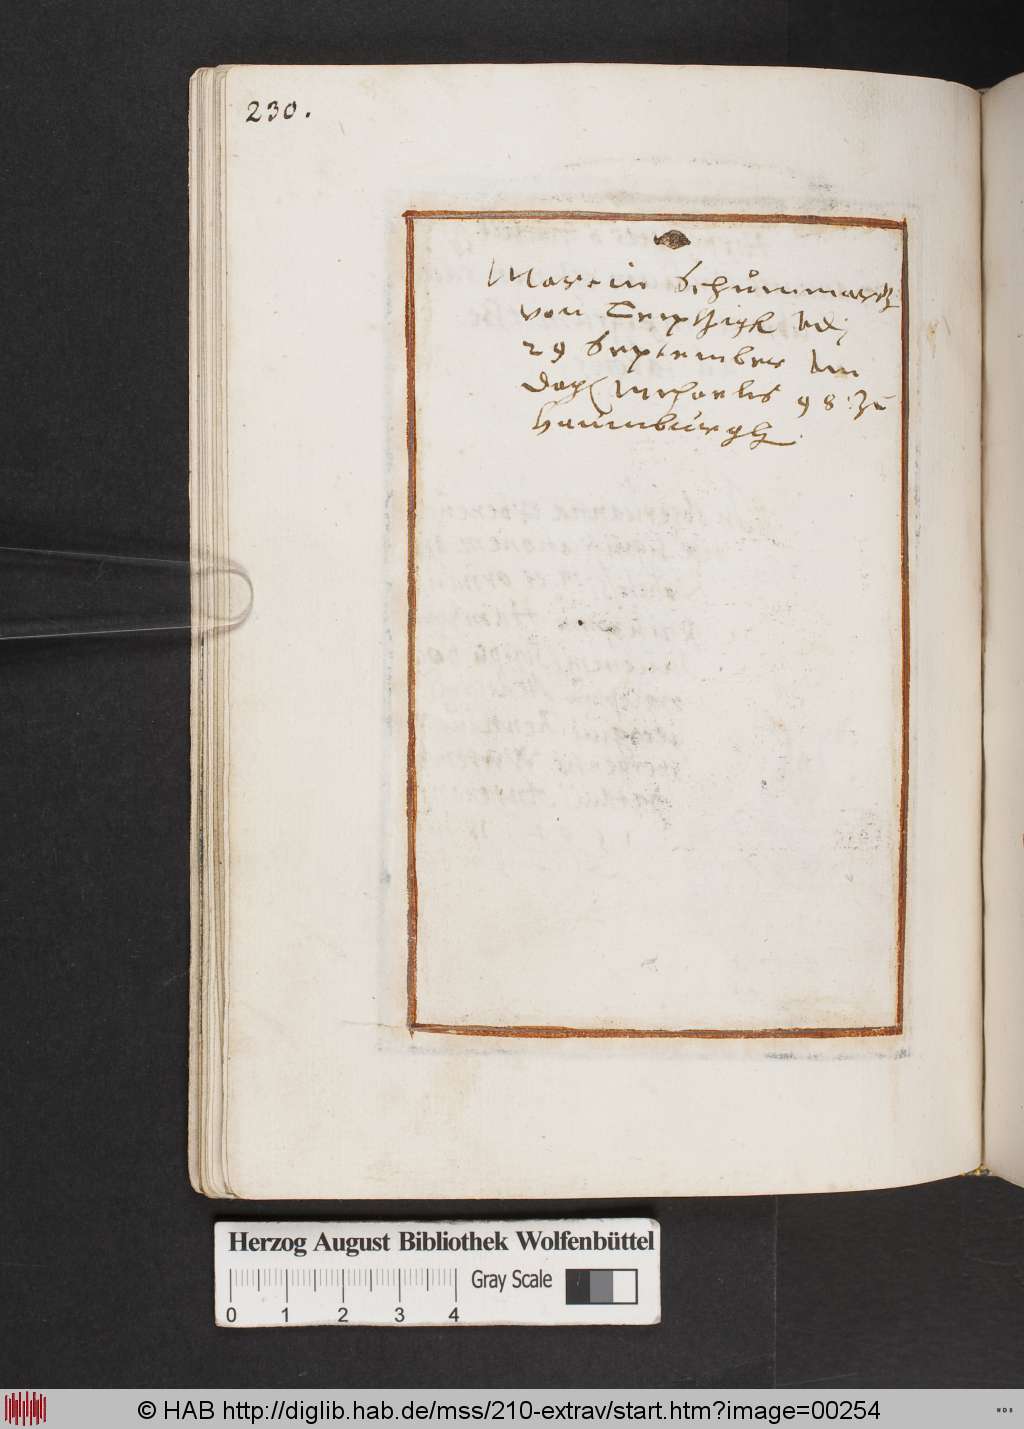 230.
Martin Schůmmartz
von Leiptzigk Adj
29 September Am
dagl Michaelis 98: Zů
Haumbůrgk
Herzog August Bibliothek Wolfenbüttel
Gray Scale
0 1 2 3 4
© HAB http://diglib.hab.de/mss/210-extrav/start.htm?image=00254